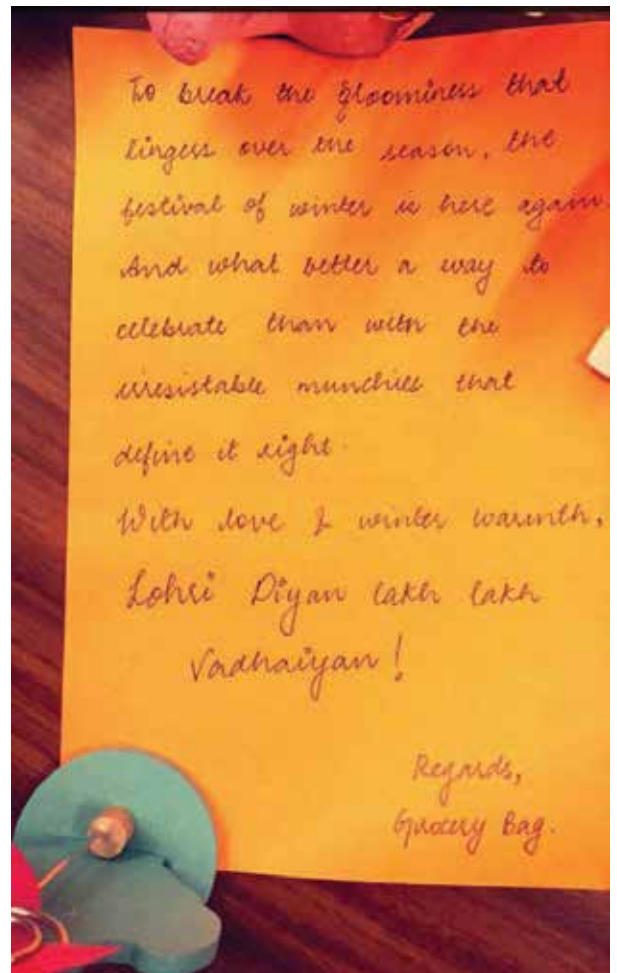 To break the gloominess that
lingers over the season, the
festival of winter is here again.
And what better a way to
celebrate than with the
irresistable munchies that
define it right.
With love & winter warmth,
Lohri Diyan lakh lakh
Vadhaiyan!
Regards,
Grocery Bag.